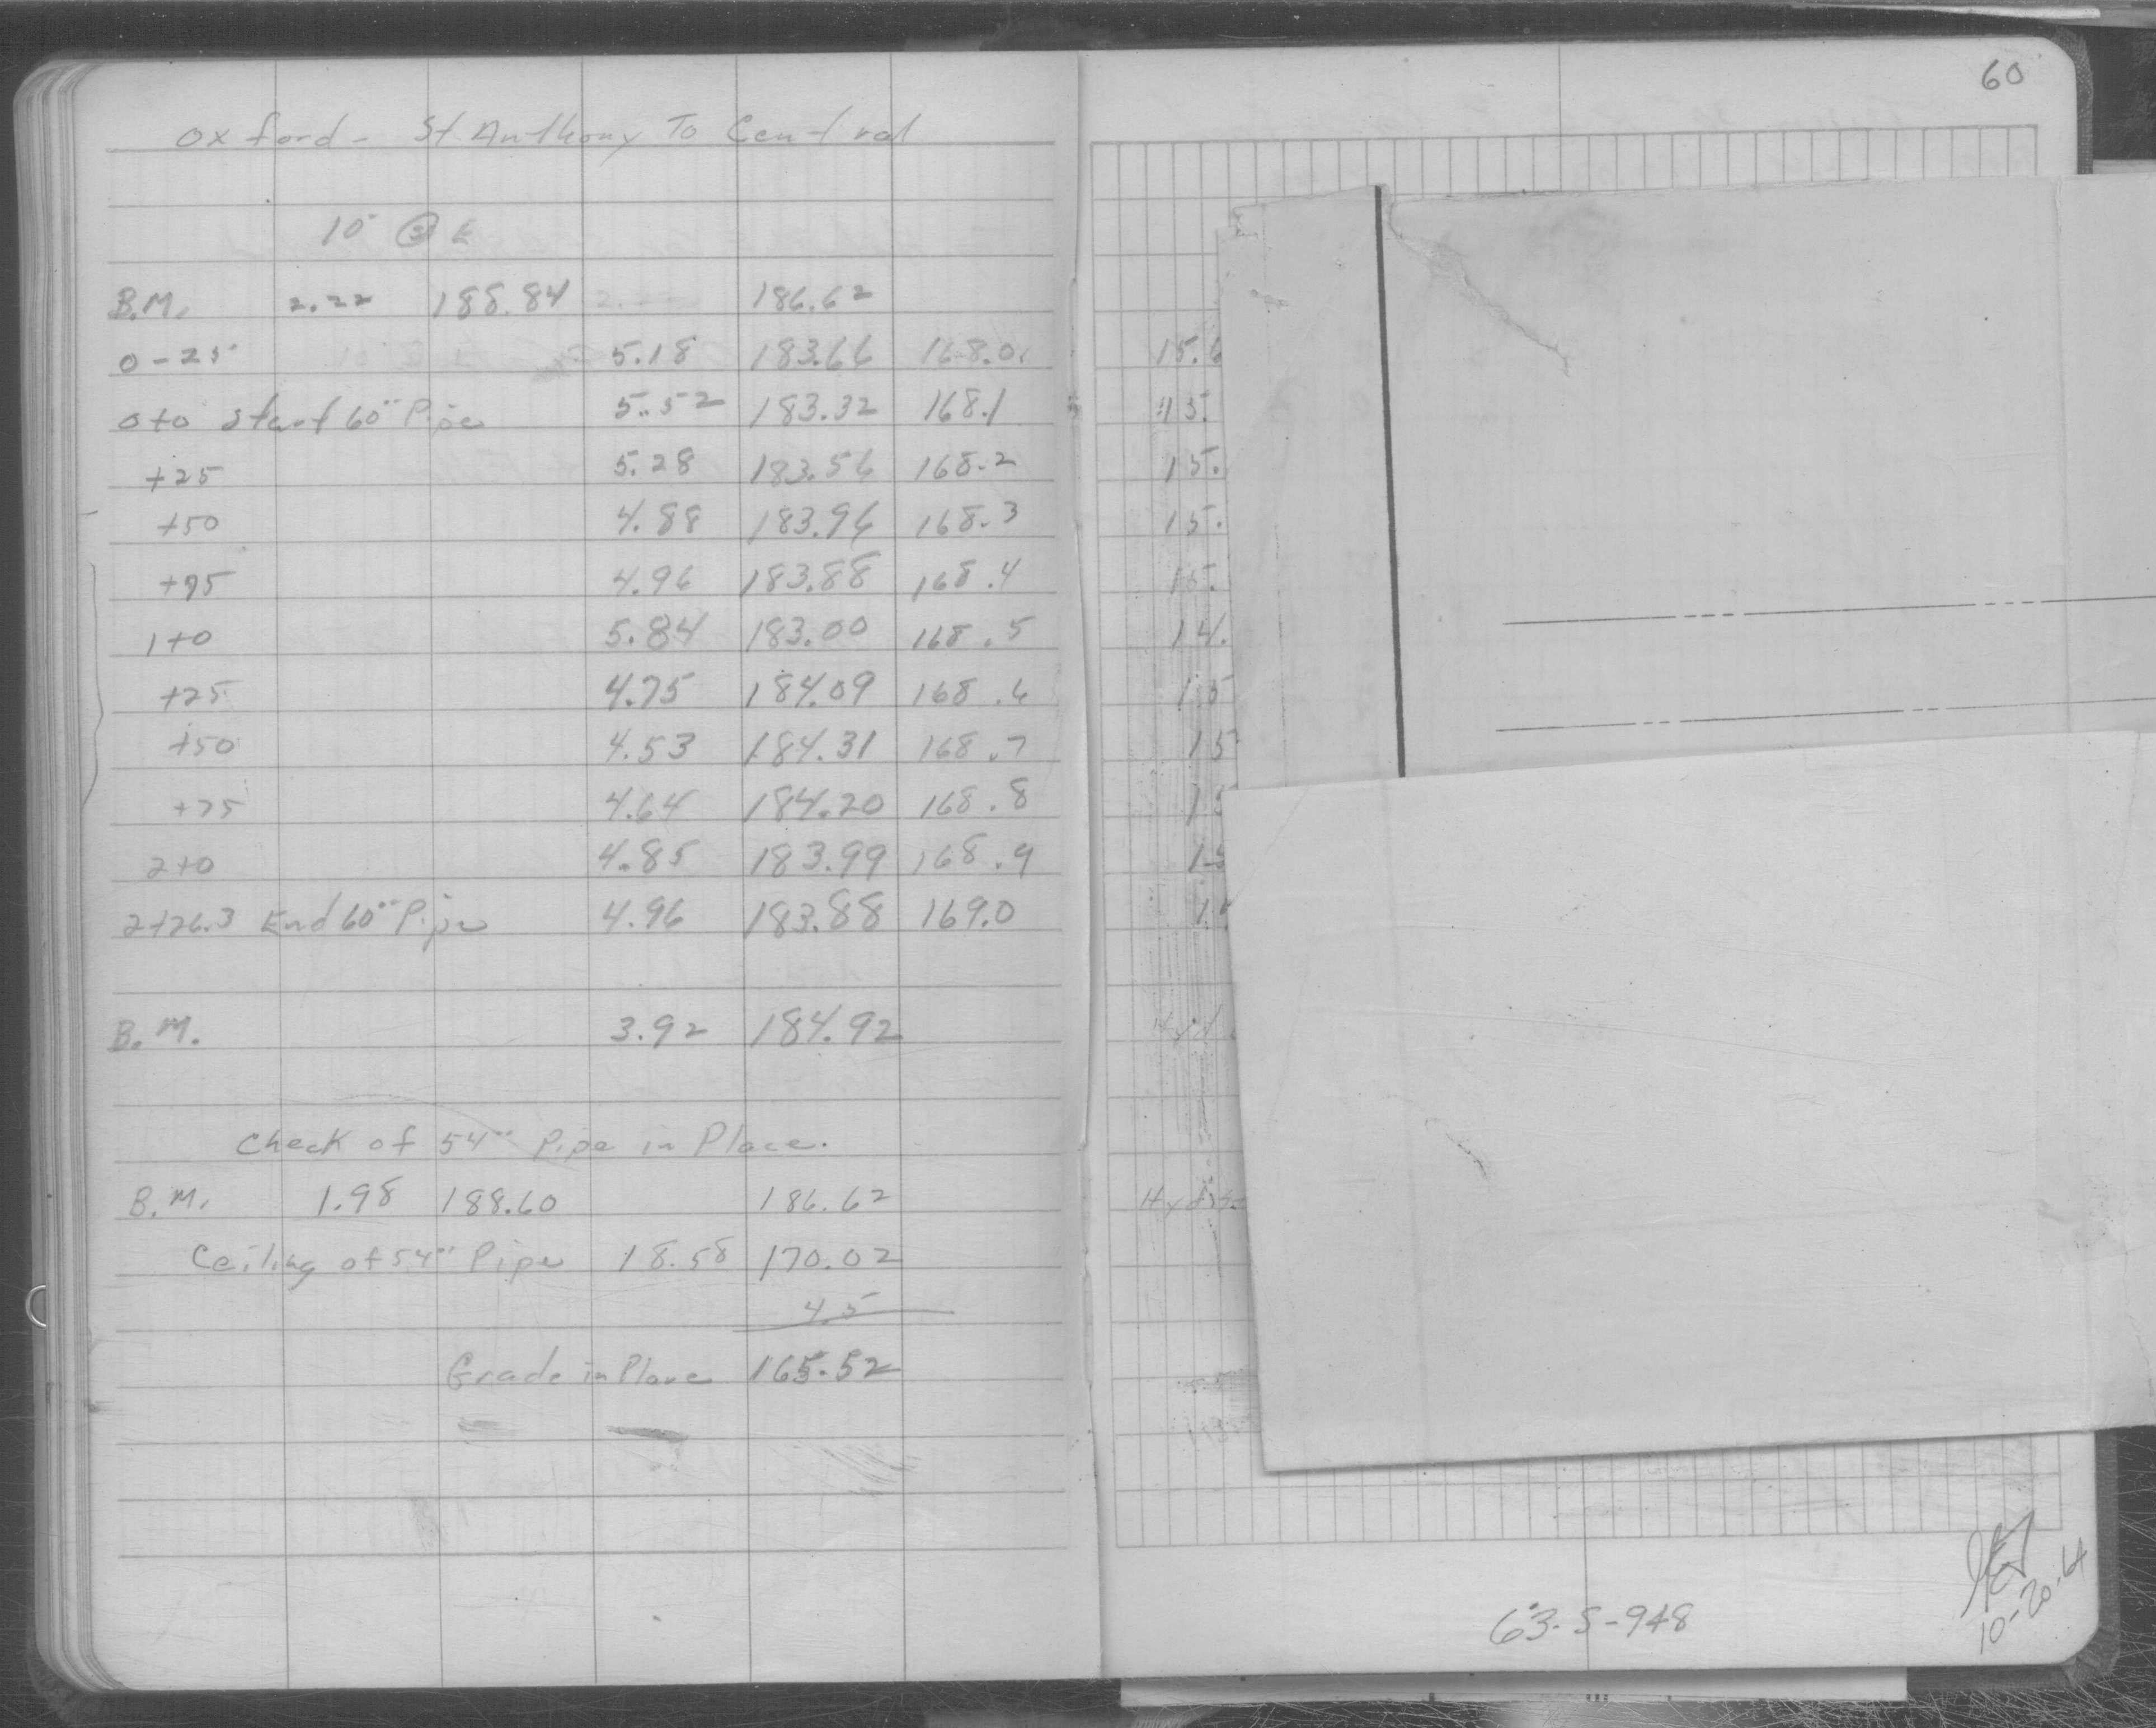 60
Oxford - St Anthony To Central
10' @ E
B.M. 2.22 188.84 186.62
0-25 5.18 183.66 168.0 15.6
0+0 Start 60" Pipe 5.52 183.32 168.1 15.
+25 5.28 183.56 168.2 15.
+50 4.88 183.96 168.3 15.
+75 4.96 183.88 168.4 15.
1+0 5.84 183.00 168.5 14.
+25 4.75 184.09 168.6 15
+50 4.53 184.31 168.7 15
+75 4.64 184.20 168.8 15
2+0 4.85 183.99 168.9 15
2+26.3 End 60" Pipe 4.96 183.88 169.0 1
B.M. 3.92 184.92 Hyd
Check of 54" Pipe in Place.
B.M. 1.98 188.60 186.62 Hyd
Ceiling of 54" Pipe 18.58 170.02
4.5
Grade in Place 165.52
63-S-948
10-20-64